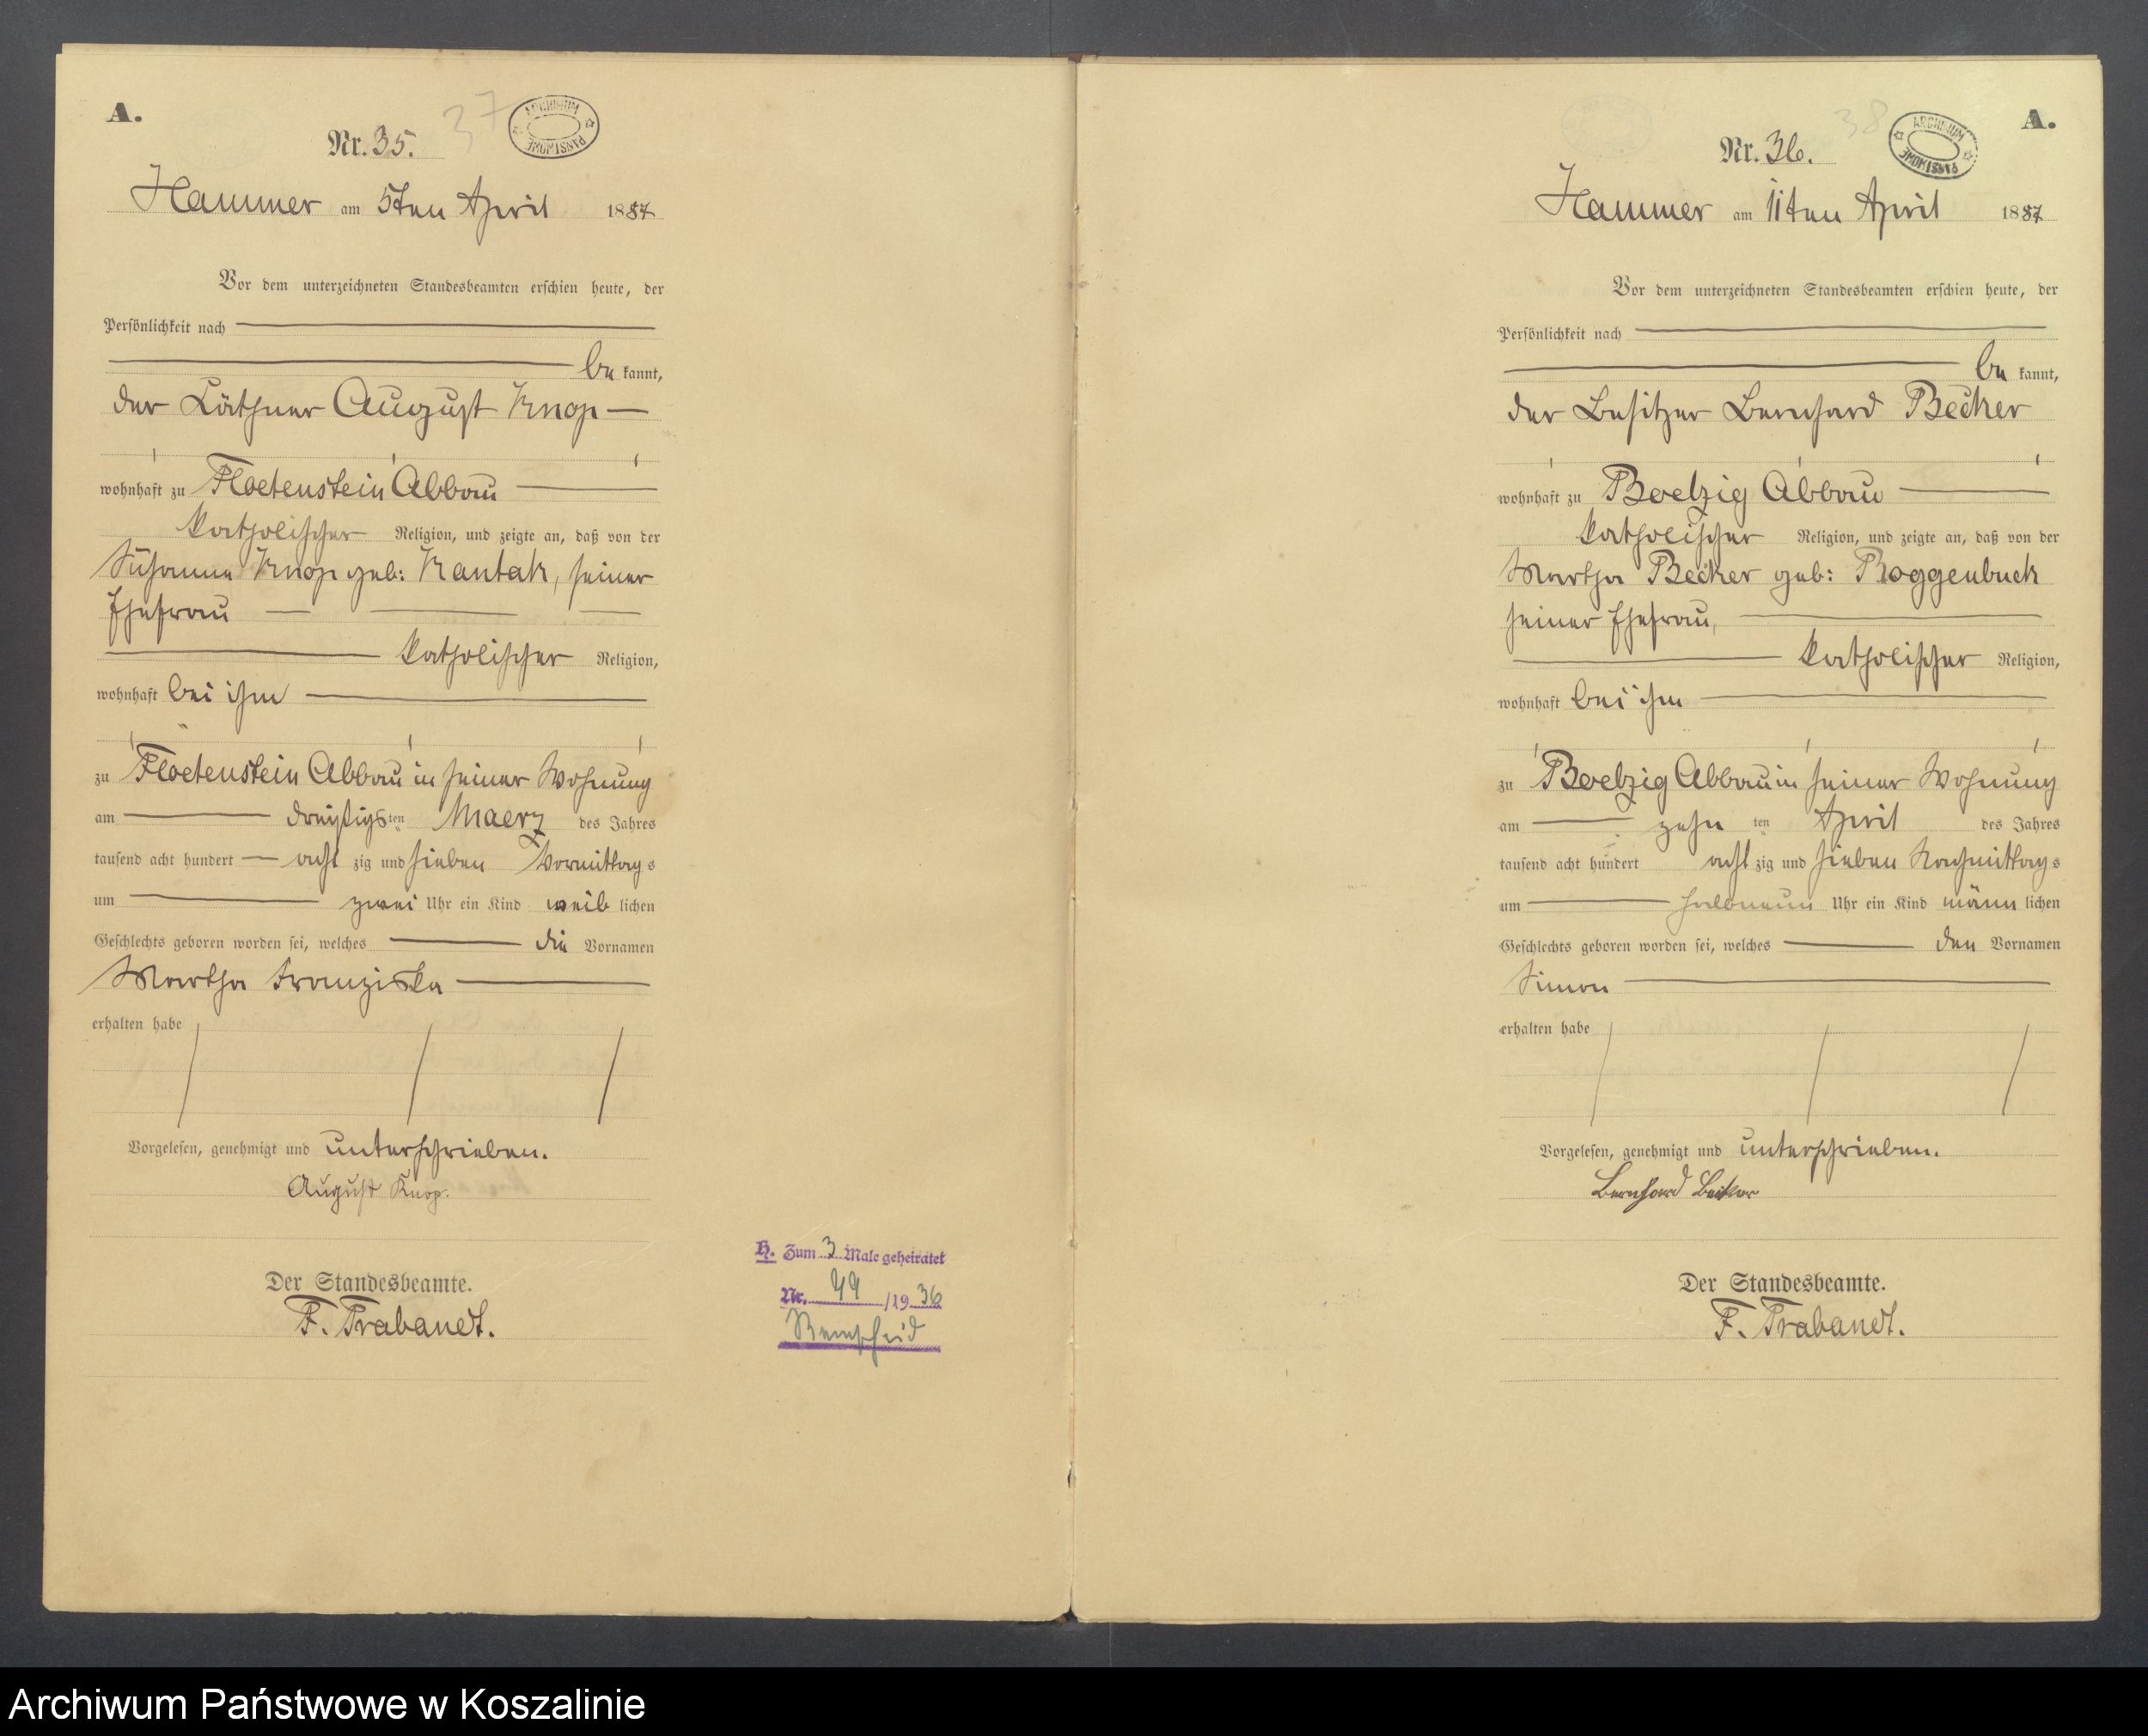 A.
Nr. 35.
37
ARCHIWUM PAŃSTWOWE
Hammer am 5ten April 1887
Vor dem unterzeichneten Standesbeamten erschien heute, der
Persönlichkeit nach
be kannt,
der Käthner August Knop
wohnhaft zu Floetenstein Abbau
katholischer Religion, und zeigte an, daß von der
Susanna Knop geb: Kantak, seiner
Ehefrau
katholischer Religion,
wohnhaft bei ihm
zu Floetenstein Abbau in seiner Wohnung
am dreißigsten Maerz des Jahres
tausend acht hundert acht zig und sieben Vormittags
um zwei Uhr ein Kind weib lichen
Geschlechts geboren worden sei, welches die Vornamen
Martha Franziska
erhalten habe
Vorgelesen, genehmigt und unterschrieben.
August Knop.
Der Standesbeamte.
F. Trabandt.
H. Zum 3 Male geheiratet
Nr. 49 /19 36
Remscheid
A.
Nr. 36.
38
ARCHIWUM PAŃSTWOWE
Hammer am 11ten April 1887
Vor dem unterzeichneten Standesbeamten erschien heute, der
Persönlichkeit nach
be kannt,
der Besitzer Bernhard Becker
wohnhaft zu Boelzig Abbau
katholischer Religion, und zeigte an, daß von der
Martha Becker geb: Roggenbuck
seiner Ehefrau,
katholischer Religion,
wohnhaft bei ihm
zu Boelzig Abbau in seiner Wohnung
am zehn ten April des Jahres
tausend acht hundert acht zig und sieben Nachmittags
um halbneun Uhr ein Kind männ lichen
Geschlechts geboren worden sei, welches den Vornamen
Simon
erhalten habe
Vorgelesen, genehmigt und unterschrieben.
Bernhard Becker
Der Standesbeamte.
F. Trabandt.
Archiwum Państwowe w Koszalinie